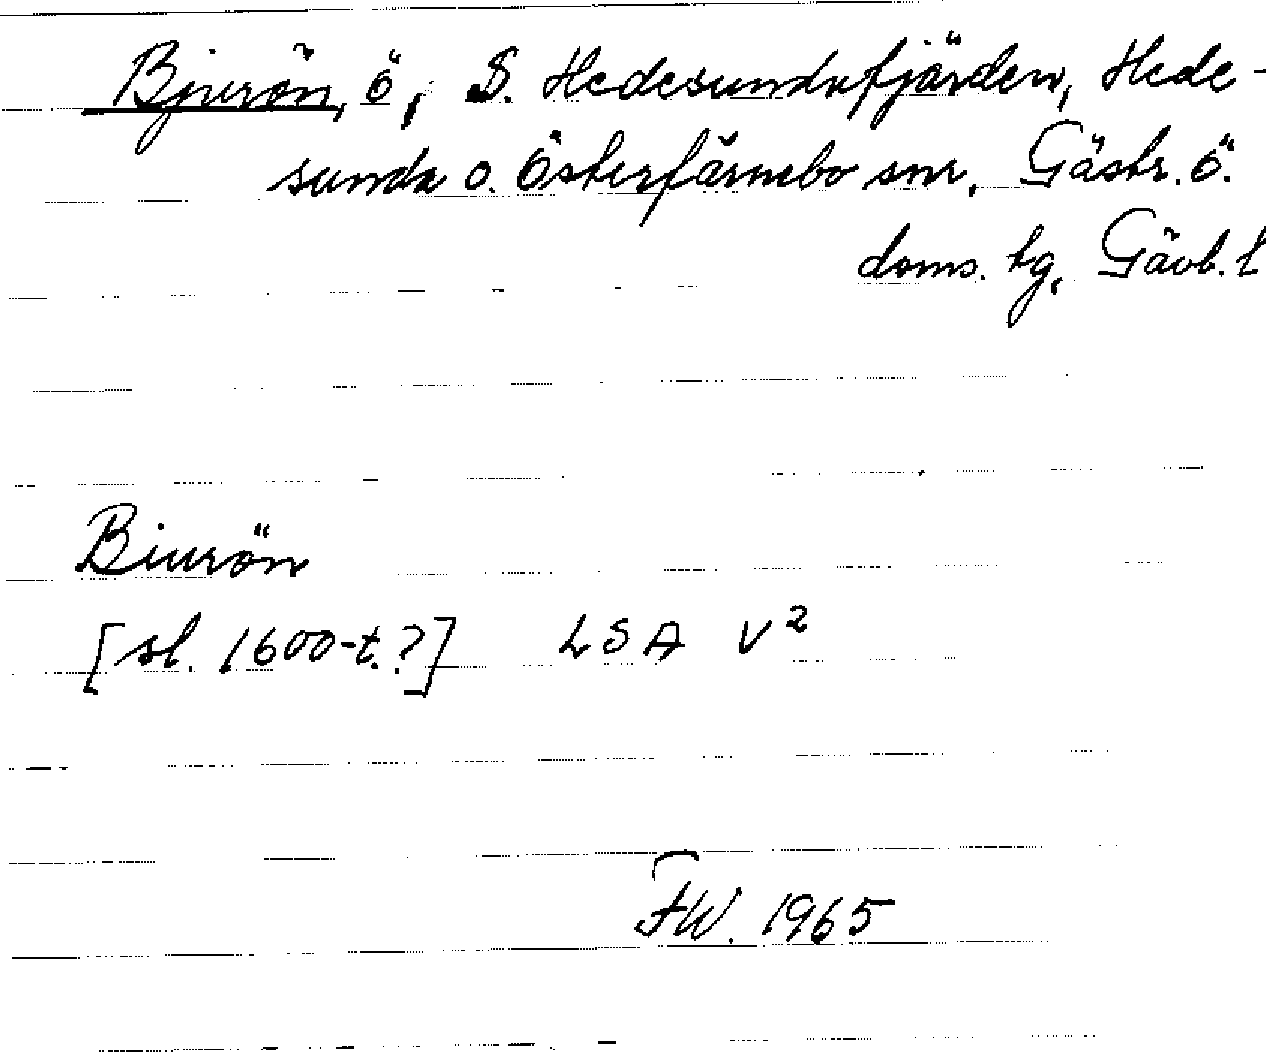 Bjurön, ö, S. Hedesundafjärden, Hede-
sunda o. Österfärnebo snr, Gästr. ö.
doms. tg, Gävl. l
Biurön
[sl. 1600-t.?] LSA V²
FW. 1965